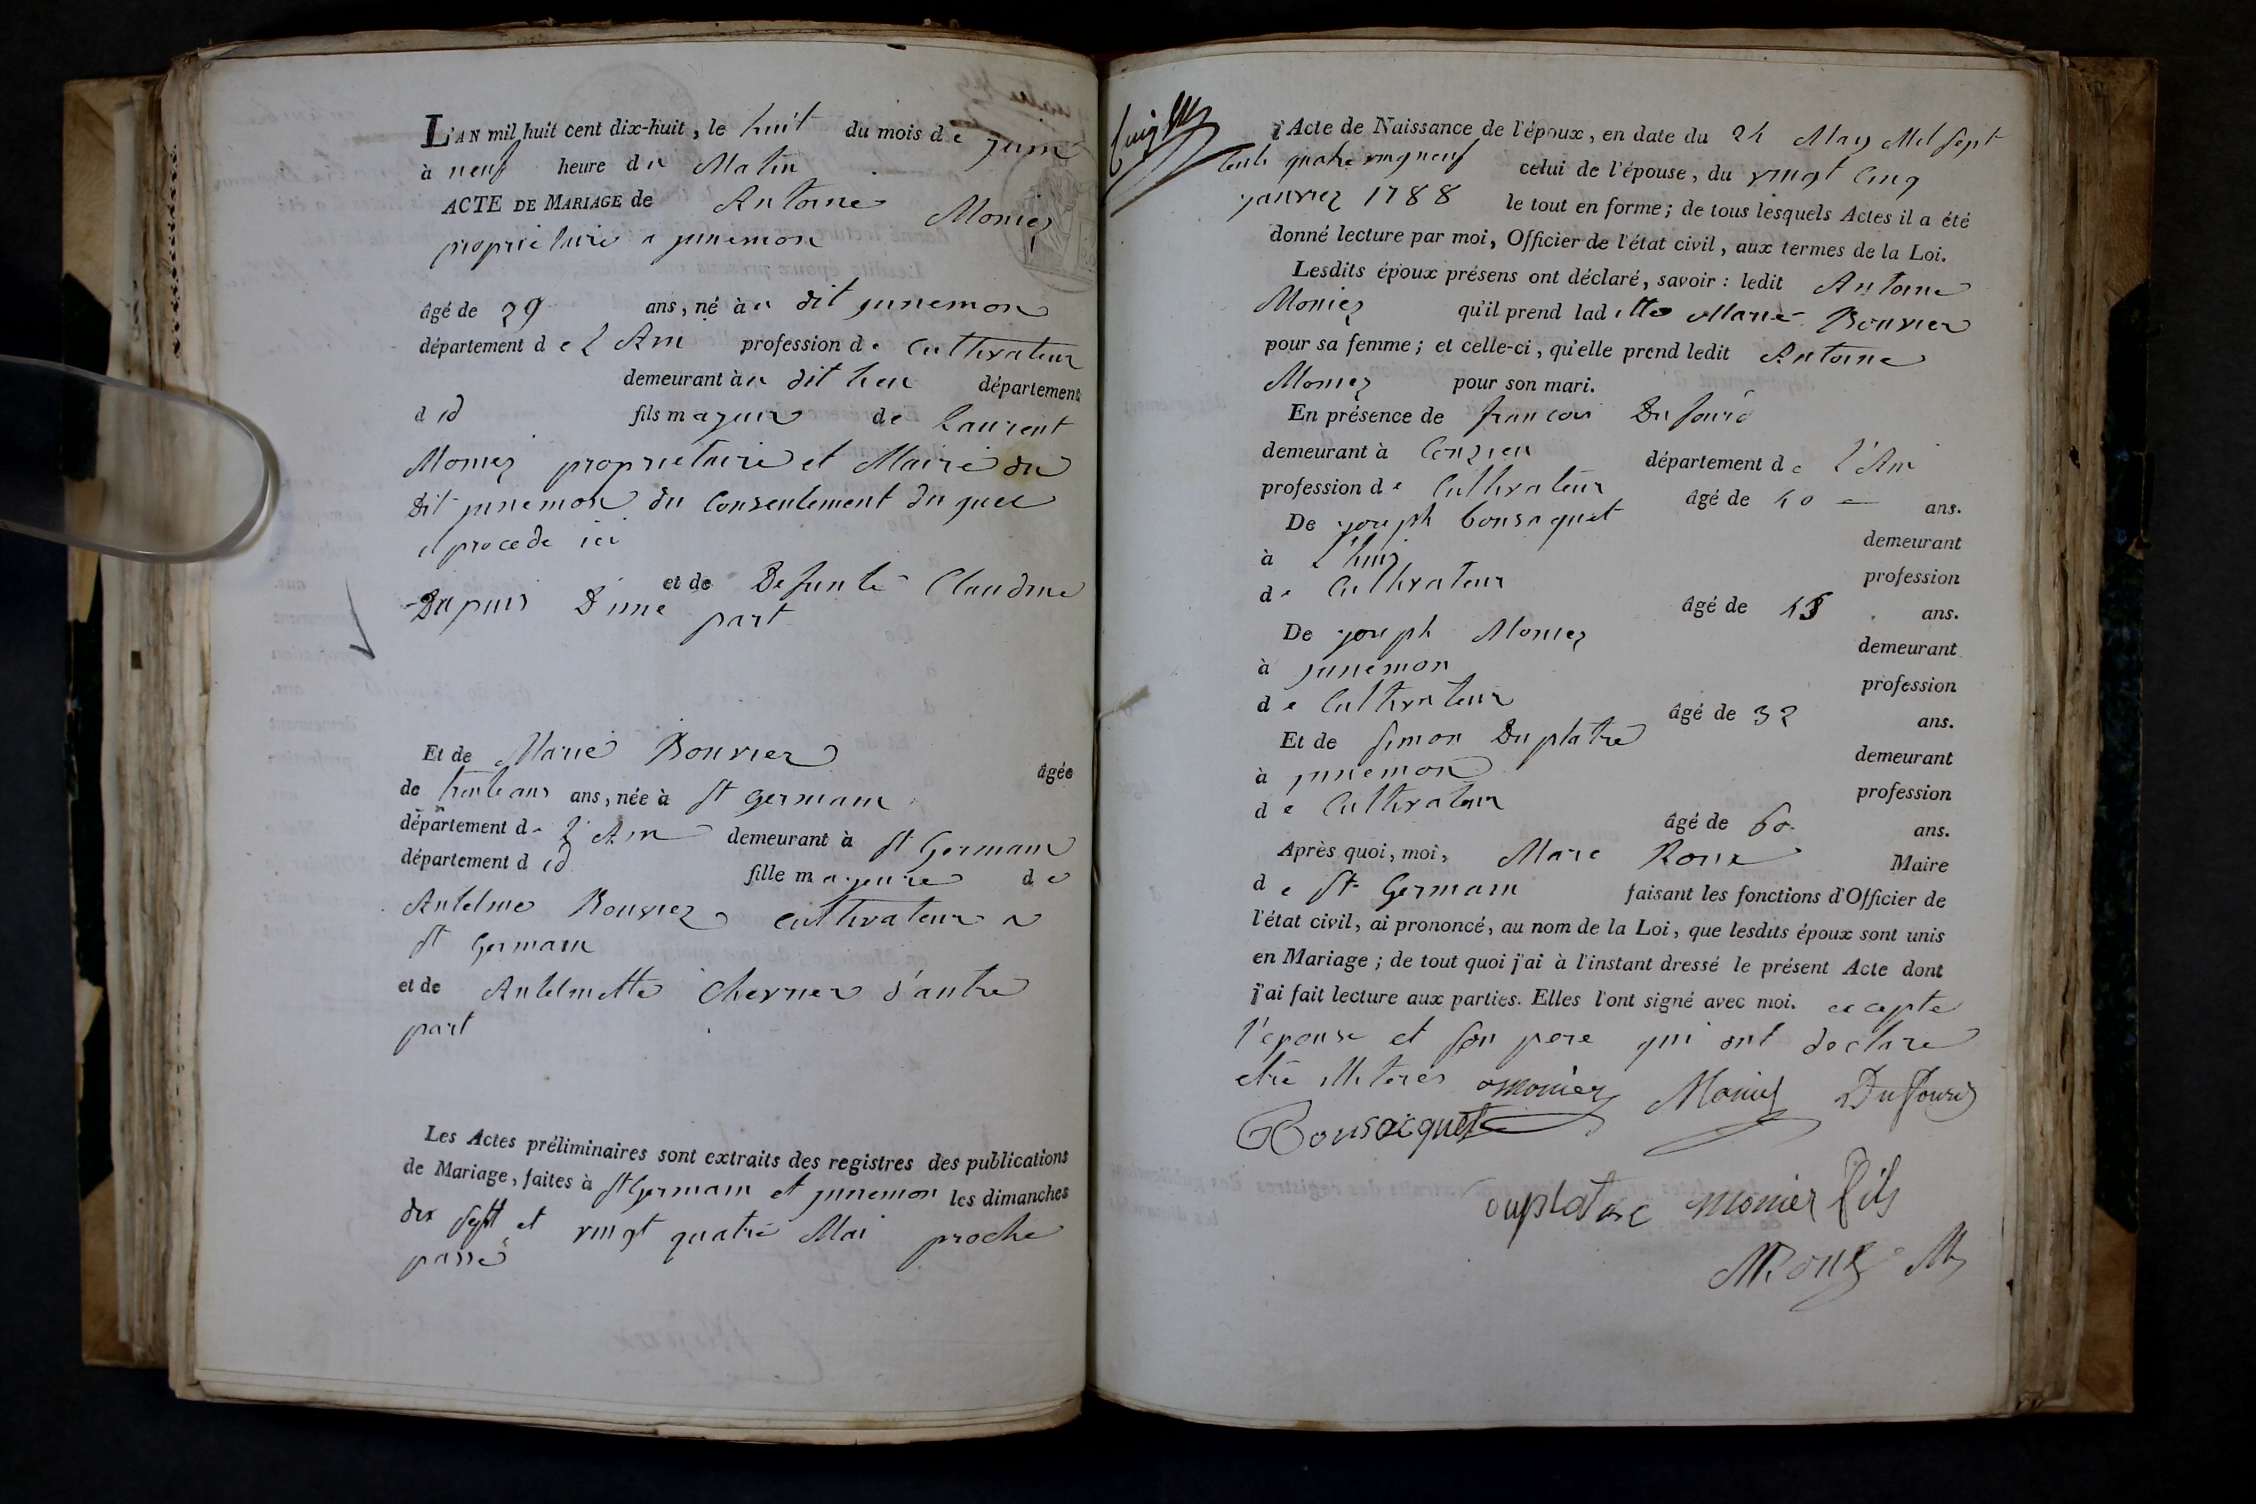 L'AN mil huit cent dix-huit, le huit du mois de juin
à neuf heure du Matin
ACTE DE MARIAGE de Antoine Monier
proprietaire a junemon
âgé de 29 ans, né à u dit junemon
département de l Ain profession de Cultivateur
demeurant à u dit lieu département
d id fils majeur de Laurent
Monier proprietaire et Maire du
dit junemon du Consentement du quel
il procede ici
et de Defunte Claudine
Dupuis D'une part
Et de Marie Bouvier âgée
de trente ans ans, née à St germain
département de L'Ain demeurant à St Germain
département d id fille majeure de
Antelme Bouvier cultivateur a
St Germain
et de Antelmette Chervier d'autre
part
Les Actes préliminaires sont extraits des registres des publications
de Mariage, faites à St Germain et junemon les dimanches
dix sept et vingt quatre Mai proche
passé
l'Acte de Naissance de l'époux, en date du 24 May Mil sept
Cent quatre vingt neuf celui de l'épouse, du vingt Cinq
janvier 1788 le tout en forme; de tous lesquels Actes il a été
donné lecture par moi, Officier de l'état civil, aux termes de la Loi.
Lesdits époux présens ont déclaré, savoir: ledit Antoine
Monier qu'il prend ladite Marie Bouvier
pour sa femme; et celle-ci, qu'elle prend ledit Antoine
Monier pour son mari.
En présence de francois Dufour
demeurant à Conzieu département de L'Ain
profession de Cultivateur âgé de 40 ans.
De joseph bonsaquet demeurant
à L'huis profession
de Cultivateur âgé de ans.
De joseph Monier demeurant
à junemon profession
de Cultivateur âgé de 32 ans.
Et de simon Duplatre demeurant
à junemon profession
de Cultivateur âgé de 60 ans.
Après quoi, moi, Marc Roux Maire
de St Germain faisant les fonctions d'Officier de
l'état civil, ai prononcé, au nom de la Loi, que lesdits époux sont unis
en Mariage; de tout quoi j'ai à l'instant dressé le présent Acte dont
j'ai fait lecture aux parties. Elles l'ont signé avec moi. excepte
l'epouse et son pere qui ont declare
etre illiteres Monier Monier Dufour
Bonsacquet
duplatre monier fils
MRoux M